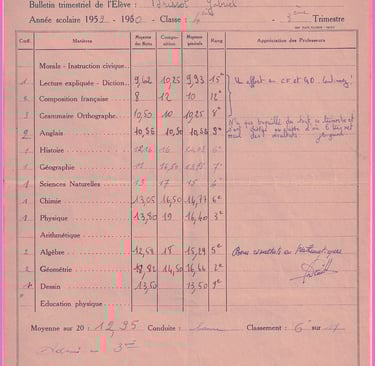 Bulletin trimestriel de l'Elève : Brissot Gabriel
Année scolaire 1959 - 1960 - Classe : 4ème 3ème Trimestre
Coef. Matières Moyenne des Notes Composition Moyenne générale Rang Appréciation des Professeurs
Morale - Instruction civique
1 Lecture expliquée - Diction 9,62 10,25 9,93 15e Un effort en CF et GO. Continuez !
Composition française 8 12 10 12e
3 Grammaire Orthographe 10,50 10 10,25 8e
2 Anglais 10,56 10,50 10,56 9e
1 Histoire 16 6e
1 Géographie 16,50 13,75 7e
1 Sciences Naturelles 13 17 15 6e
1 Chimie 13,05 16,50 14,77 6e
1 Physique 13,80 19 16,40 3e
Arithmétique
2 Algèbre 12,58 18 15,29 5e Bons résultats en Mathématiques
2 Géométrie 18,82 14,50 16,66 2e
1 Dessin 13,50 13,50 9e
Education physique
Moyenne sur 20 : 12,95 Conduite : Classement : 6e sur 17
Admis en 3e